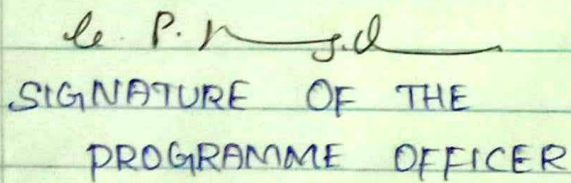 SIGNATURE OF THE
PROGRAMME OFFICER